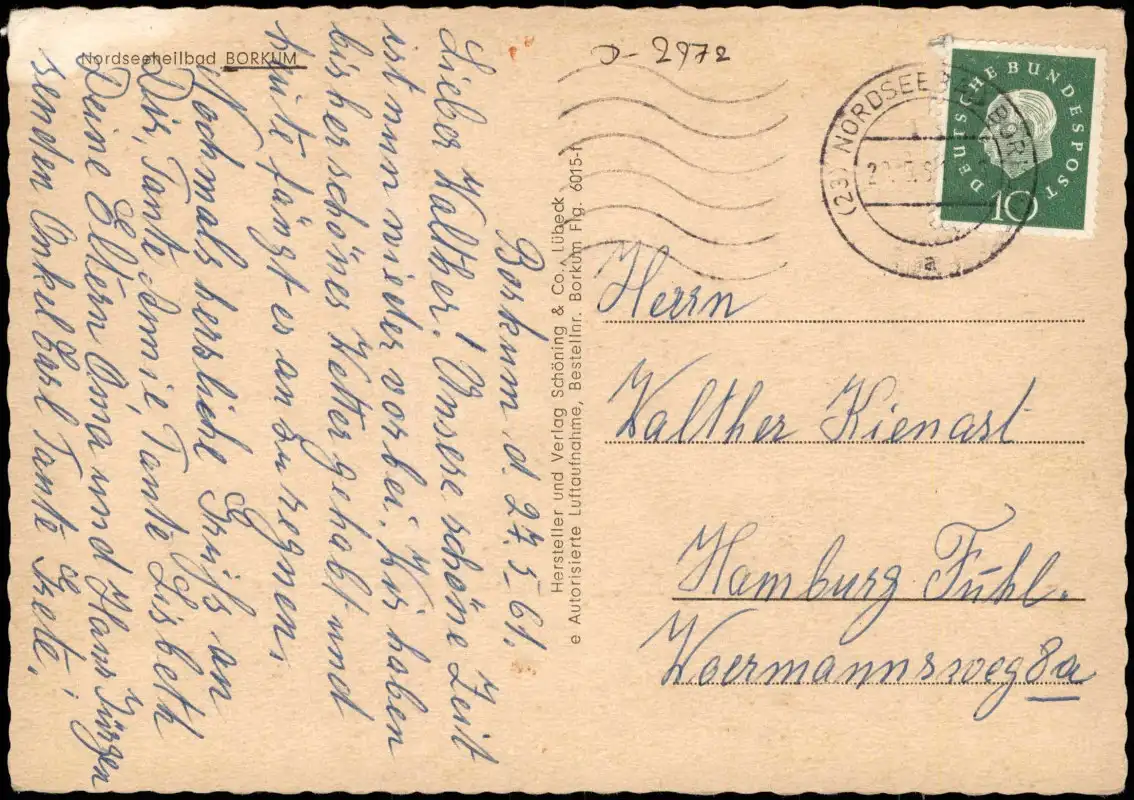 Nordseeheilbad BORKUM
Borkum d. 27.5-61.
Lieber Walther! Unsere schöne Zeit
ist nun wieder vorbei. Wir haben
bisher schönes Wetter gehabt und
heute fängt es an zu regnen.
Nochmals herzliche Grüß an
Dir, Tante Lisbeth
Deine Eltern Oma und Hans Jürgen
senden Onkel Karl Tante Grete.
Hersteller und Verlag Schöning & Co., Lübeck
e Autorisierte Luftaufnahme, Bestellnr. Borkum Flg. 6015-f
J- 2972
(23) NORDSEEBAD BORK
a
DEUTSCHE BUNDESPOST
10
Herrn
Walther Kienast
Hamburg Fuhl.
Woermannsweg 8a